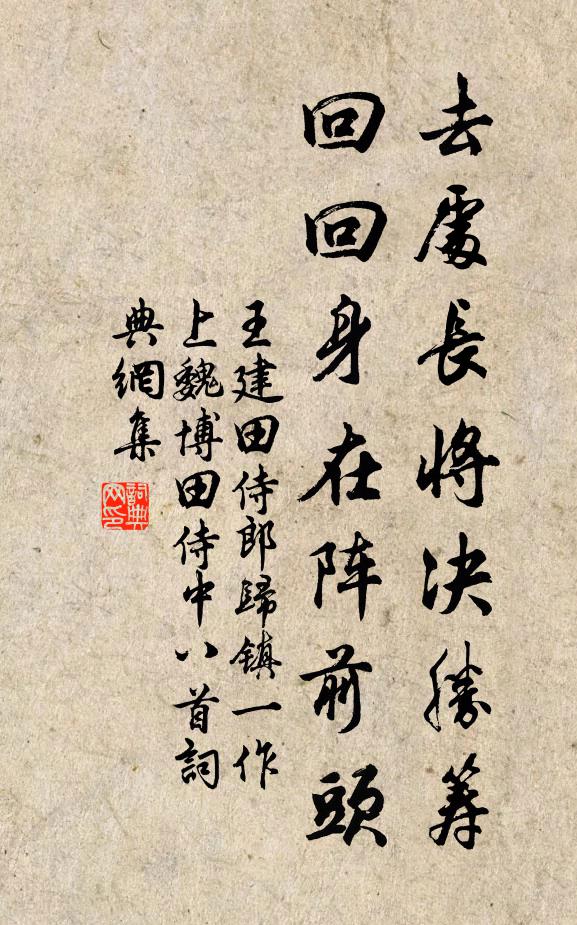 去處長將决勝筹
回回身在阵前頭
王建田侍郎歸镇一作
上魏博田侍中八首詞
典網集
詞典
网印